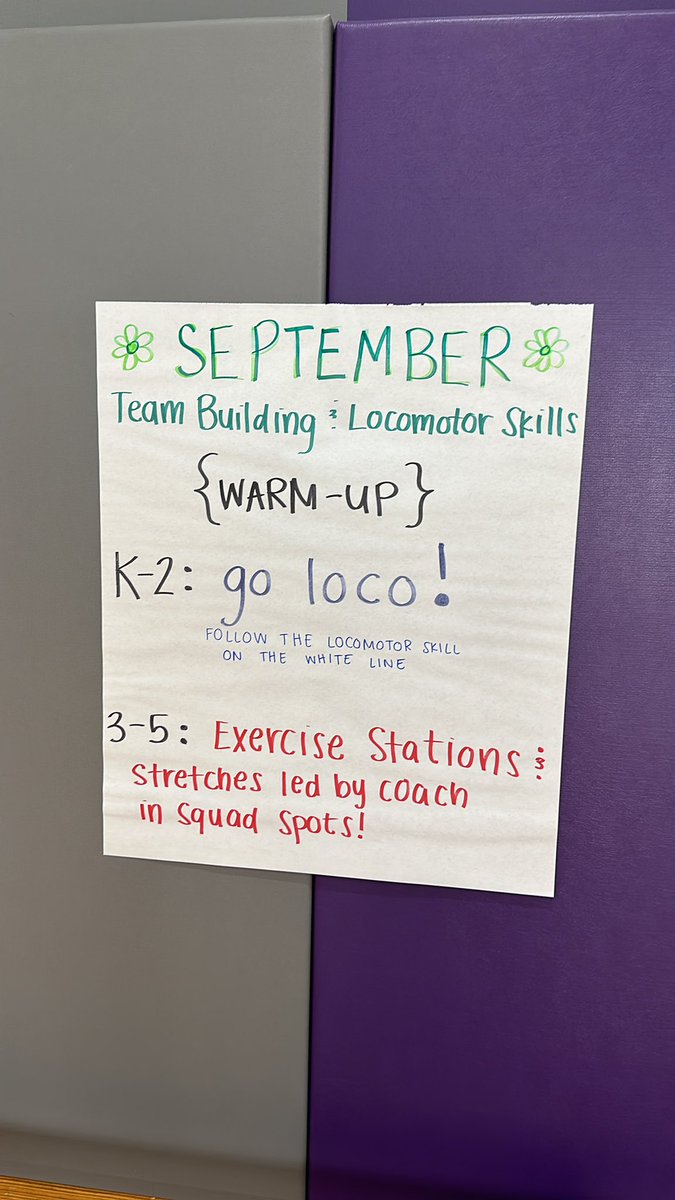 SEPTEMBER
Team Building & Locomotor Skills
{WARM-UP}
K-2: go loco!
FOLLOW THE LOCOMOTOR SKILL
ON THE WHITE LINE
3-5: Exercise Stations &
Stretches led by coach
in Squad Spots!